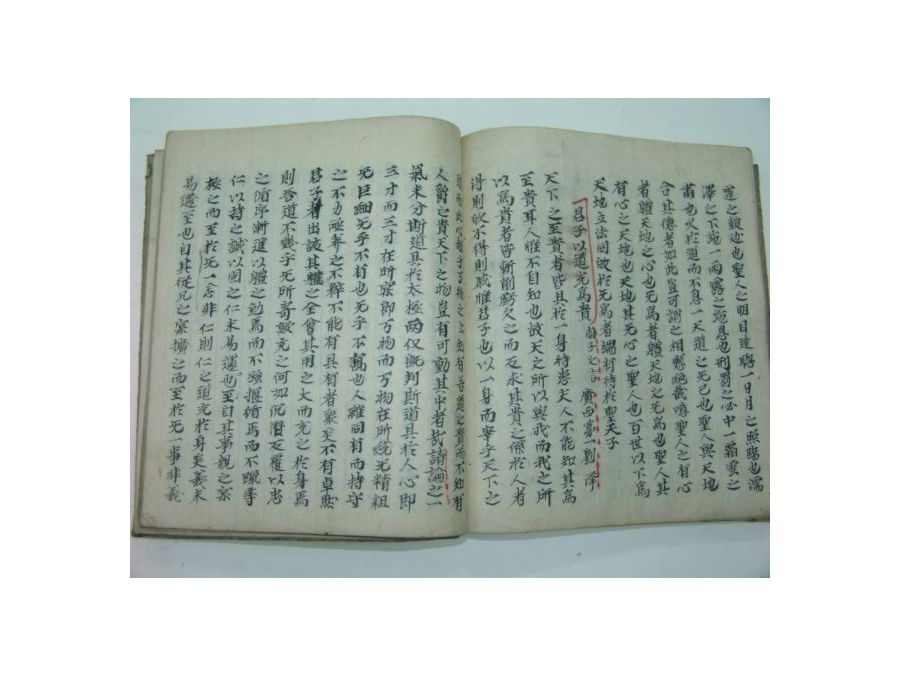 霆之鼓也聖人之明目達聰一日月之照臨也濡
澤之下施一雨露之施恩也刑罰之必中一霜雪之
肅也久於道而不息一天道之无已也聖人與天地
合其德者如此豈可謂之相懸絕哉嗚聖人之有心
者體天地之心也无為者體天地之无為也聖人其
有心之天地也天地其无心之聖人也百世以下為
天地立法固故於无為者端有待於聖天子
君子以道充為貴 周子之言 廣西第一劉澤
天下之至貴者皆具於一身特患夫人不能知其為
至貴耳人惟不自知也故天之所以與我而我之所
以為貴者皆斲削虧欠之而反求其貴之係於人者
得則欣不得則戚惟君子也以一身而舉乎天下之
人爵之貴天下之物豈有可動其中者哉請論之一
氣未分斯道具於太極兩仪既判斯道具於人心即
三寸而三寸在所窮即万物而万物在所統无精粗
无巨細无乎不有也无乎不寓也人雖同有而持守
之不力涵養之不粹不能有具有者衆矣不有卓然
君子者出該其體之全會其用之大而充之於身焉
則吾道不幾乎无所寄歟充之何如沉潛反覆以思
之循序漸進以體之勉焉而不強摳循焉而不躐等
仁以持之誠以固之仁未易遽也至自其事親之窮
極之而至於无一念非仁則仁之道充於身矣義未
易遽至也自其從兄之窮擴之而至於无一事非義